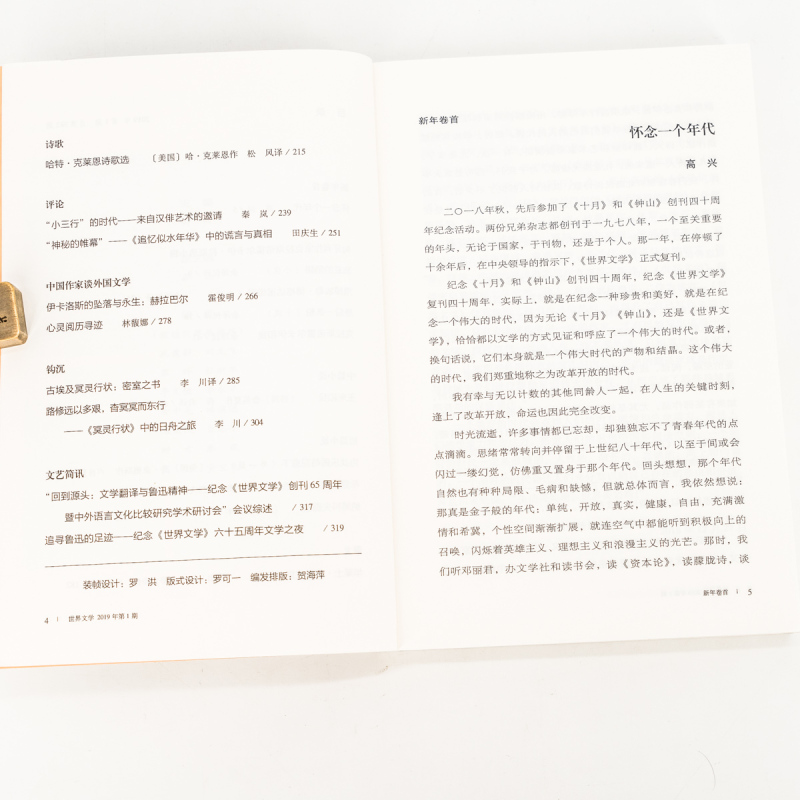 诗歌
哈特·克莱恩诗歌选 〔美国〕哈·克莱恩作 松 风译 / 215
评论
“小三行”的时代——来自汉俳艺术的邀请 秦 岚 / 239
“神秘的帷幕”——《追忆似水年华》中的谎言与真相 田庆生 / 251
中国作家谈外国文学
伊卡洛斯的坠落与永生：赫拉巴尔 霍俊明 / 266
心灵阅历寻迹 林馥娜 / 278
钩沉
古埃及冥灵行状：密室之书 李 川译 / 285
路修远以多艰，杳冥冥而东行
——《冥灵行状》中的日舟之旅 李 川 / 304
文艺简讯
“回到源头：文学翻译与鲁迅精神——纪念《世界文学》创刊 65 周年
暨中外语言文化比较研究学术研讨会”会议综述 / 317
追寻鲁迅的足迹——纪念《世界文学》六十五周年文学之夜 / 319
装帧设计：罗 洪 版式设计：罗可一 编发排版：贺海萍
4 | 世界文学 2019 年第 1 期
新年卷首
怀念一个年代
高 兴
二〇一八年秋，先后参加了《十月》和《钟山》创刊四十周
年纪念活动。两份兄弟杂志都创刊于一九七八年，一个至关重要
的年头，无论于国家，于刊物，还是于个人。那一年，在停顿了
十余年后，在中央领导的指示下，《世界文学》正式复刊。
纪念《十月》和《钟山》创刊四十周年，纪念《世界文学》
复刊四十周年，实际上，就是在纪念一种珍贵和美好，就是在纪
念一个伟大的时代，因为无论《十月》《钟山》，还是《世界文
学》，恰恰都以文学的方式见证和呼应了一个伟大的时代。或者，
换句话说，它们本身就是一个伟大时代的产物和结晶。这个伟大
的时代，我们郑重地称之为改革开放的时代。
我有幸与无以计数的其他同龄人一起，在人生的关键时刻，
逢上了改革开放，命运也因此完全改变。
时光流逝，许多事情都已忘却，却独独忘不了青春年代的点
点滴滴。思绪常常转向并停留于上世纪八十年代，以至于间或会
闪过一缕幻觉，仿佛重又置身于那个年代。回头想想，那个年代
自然也有种种局限、毛病和缺憾，但就总体而言，我依然想说：
那真是金子般的年代：单纯，开放，真实，健康，自由，充满激
情和希冀，个性空间渐渐扩展，就连空气中都能听到积极向上的
召唤，闪烁着英雄主义、理想主义和浪漫主义的光芒。那时，我
们听邓丽君，办文学社和读书会，读《资本论》，读朦胧诗，谈
新年卷首 | 5